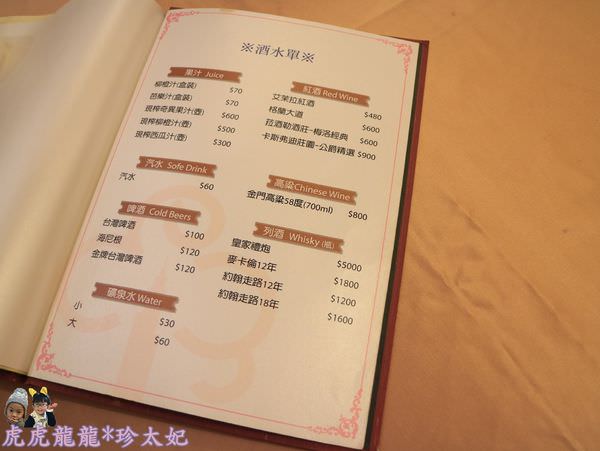 ※酒水單※
果汁 Juice
柳橙汁(盒裝) $70
芭樂汁(盒裝) $70
現榨奇異果汁(壺) $600
現榨柳橙汁(壺) $500
現榨西瓜汁(壺) $300
汽水 Sofe Drink
汽水 $60
啤酒 Cold Beers
台灣啤酒 $100
海尼根 $120
金牌台灣啤酒 $120
礦泉水 Water
小 $30
大 $60
紅酒 Red Wine
艾茉拉紅酒 $480
格蘭大道 $600
菈酒勒酒莊-梅洛經典 $600
卡斯弗迪莊園-公爵精選 $900
高粱Chinese Wine
金門高粱58度(700ml) $800
列酒 Whisky (瓶)
皇家禮炮 $5000
麥卡倫12年 $1800
約翰走路12年 $1200
約翰走路18年 $1600
虎虎龍龍*珍太妃